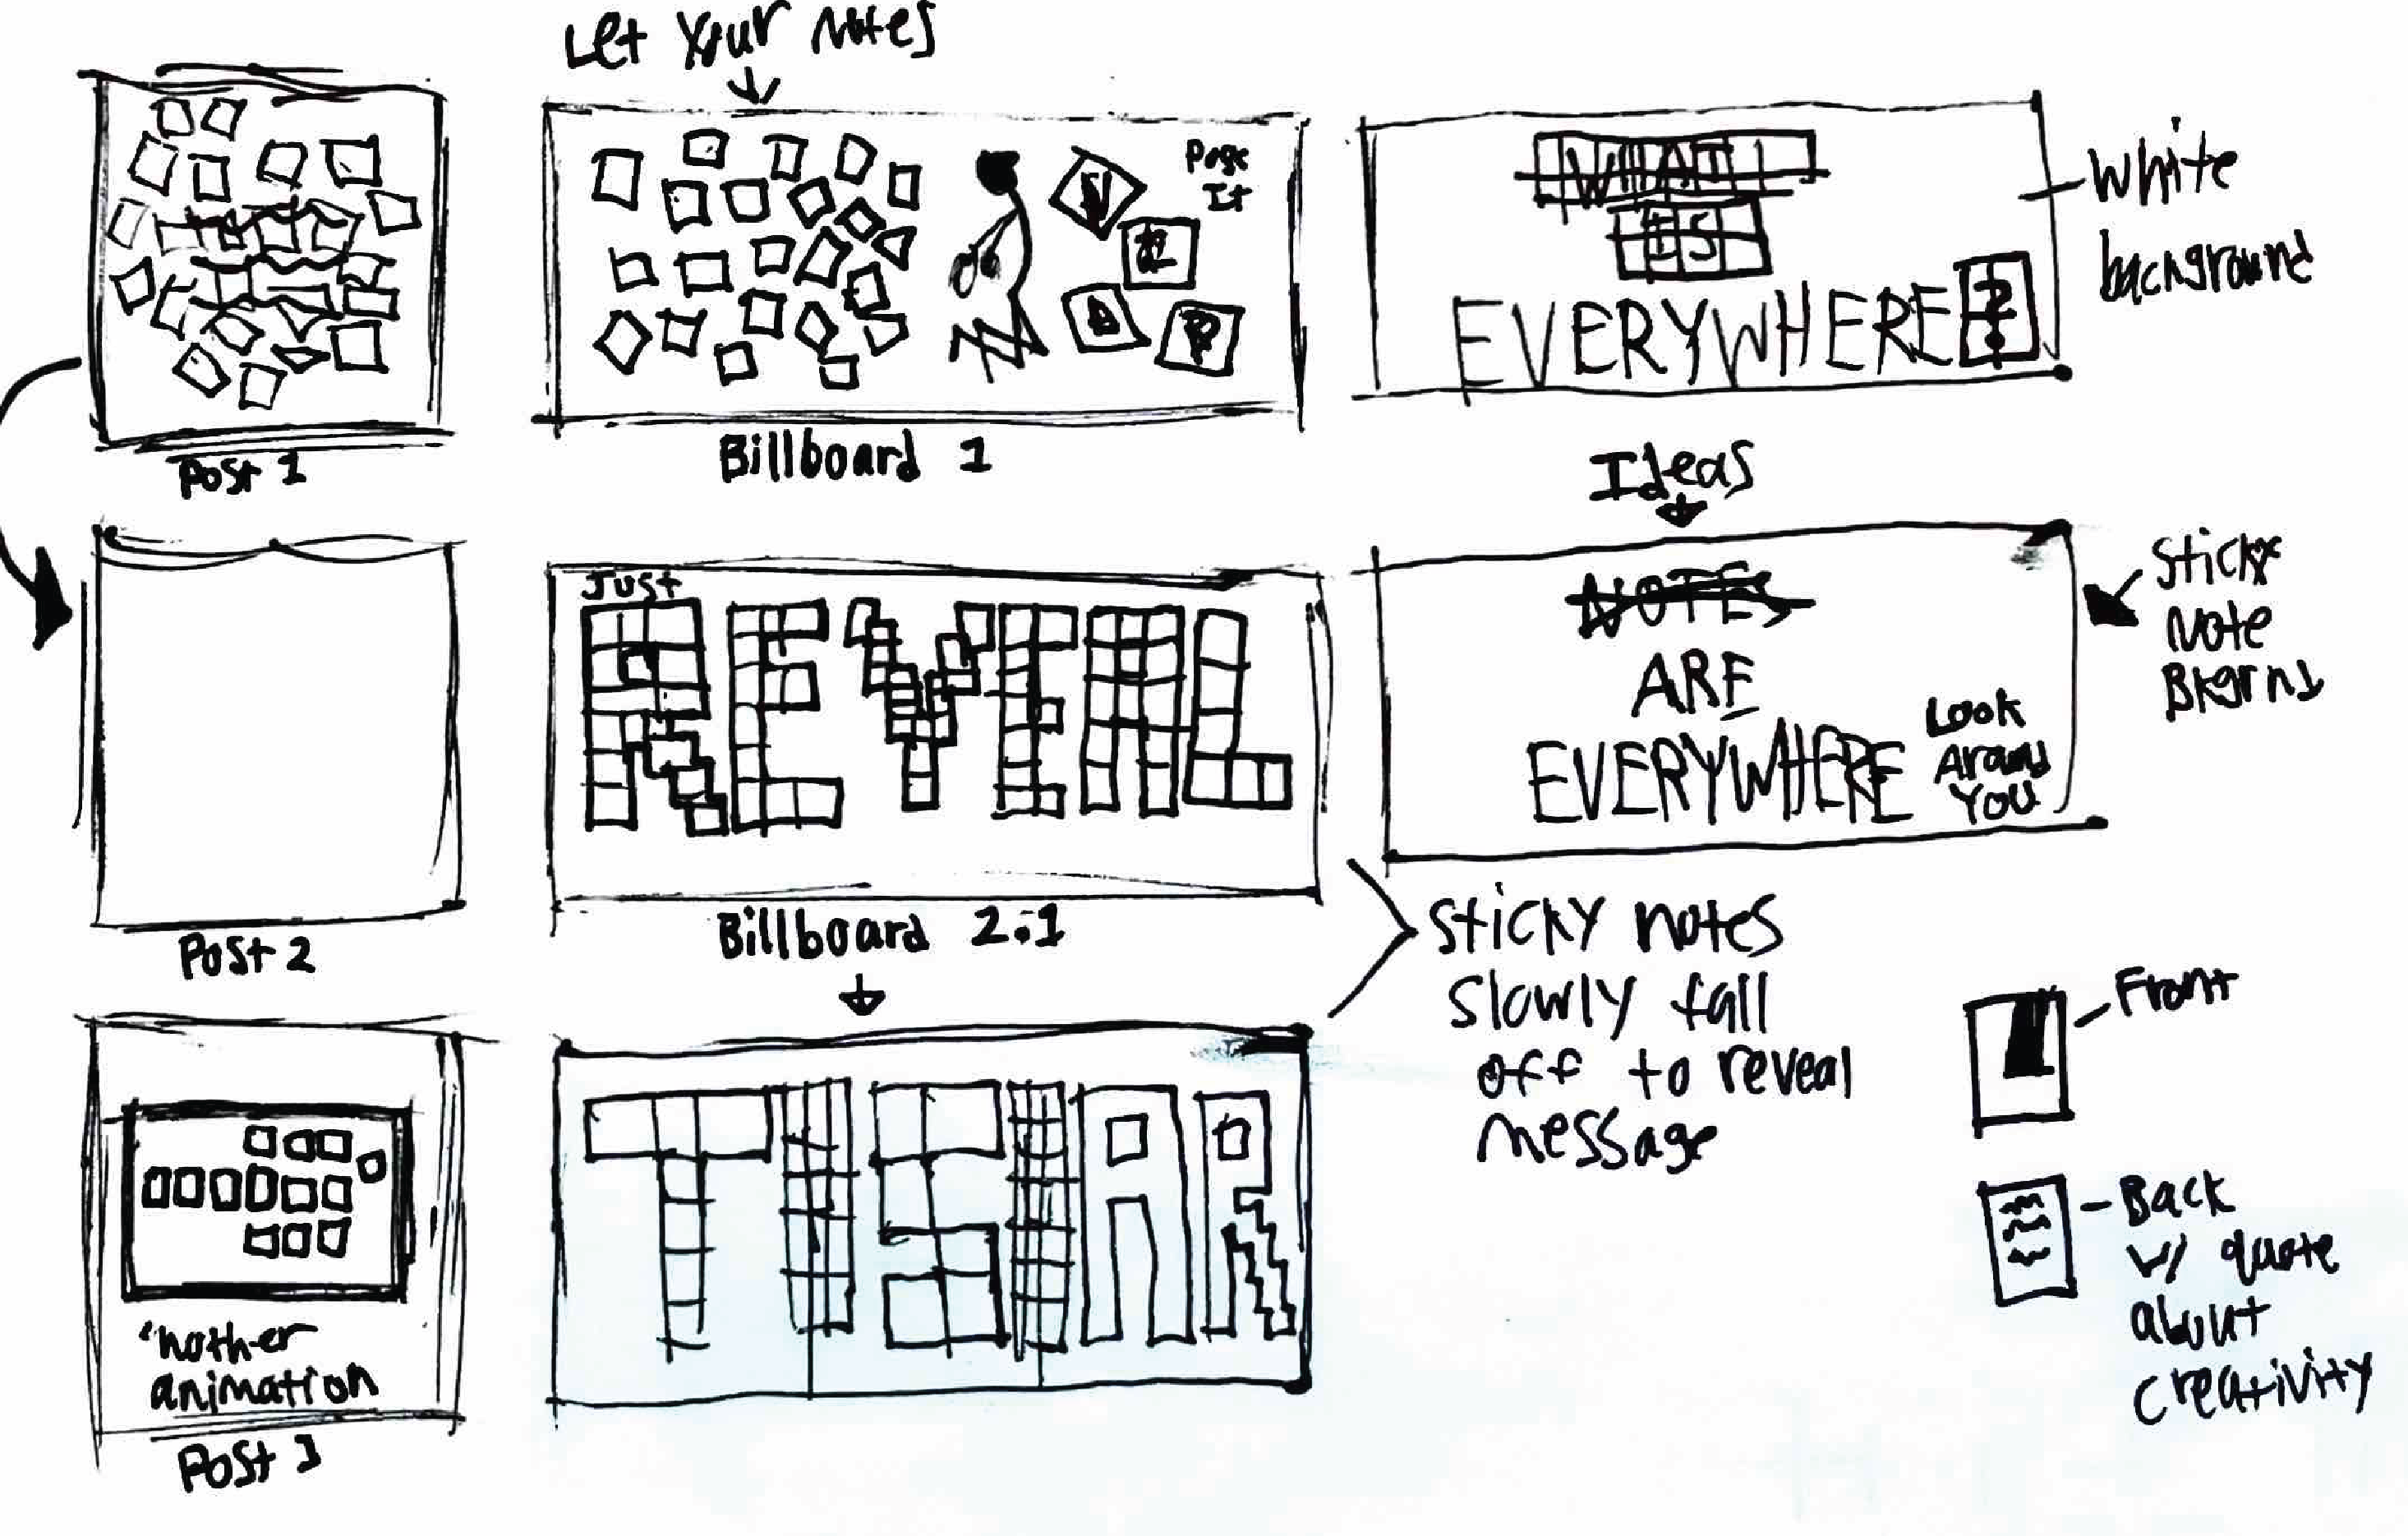 Let Your Notes
Post
It
WHAT
IS
EVERYWHERE?
White
background
Post 1
Billboard 1
Ideas
Just
NOTES
ARE
EVERYWHERE
Look
Around
You
Sticky
Note
Bkgrnd
Post 2
Billboard 2.1
Sticky notes
slowly fall
off to reveal
message
Front
Back
w/ quote
about
creativity
'nother
animation
Post 3